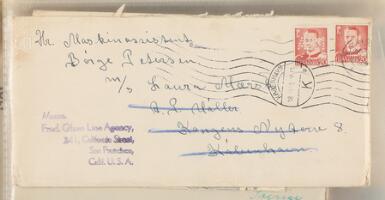 Hr. Maskinassistent
Børge Petersen
m/s Laura Mærsk
A. P. Møller
Kongens Nytorv 8
København
Messrs.
Fred. Olsen Line Agency,
241, California Street,
San Francisco,
Calif. U. S. A.
K